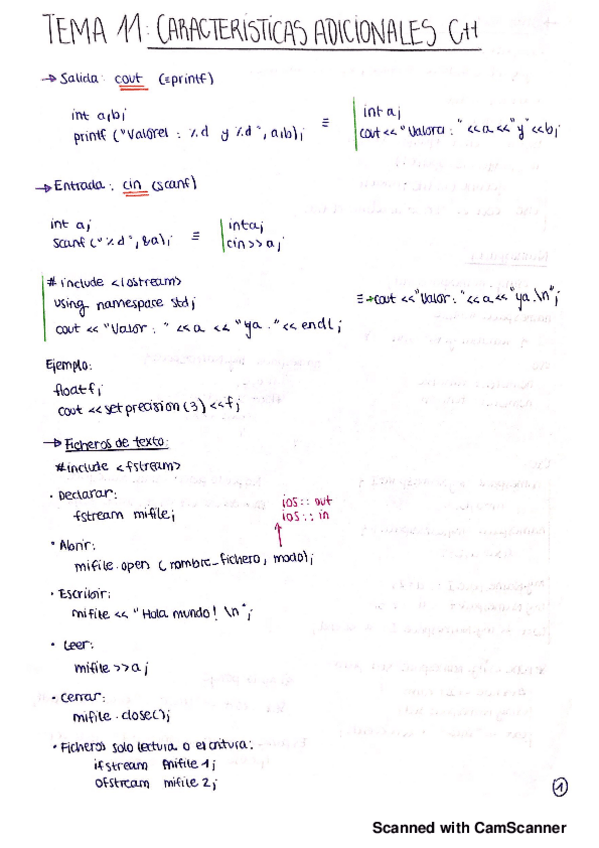 TEMA 11: CARACTERÍSTICAS ADICIONALES C++
→ Salida: cout (≡printf)
int a,b;
printf ("Valores : %d y %d", a,b);
≡
int a;
cout << "Valora: " <<a<<"y"<<b;
→ Entrada: cin (scanf)
int a;
scanf ("%d", &a);
≡
int a;
cin >> a;
# include <iostream>
using namespace std;
cout << "Valor : " << a << "ya ." << endl;
≡ → cout << "Valor: " <<a<< "ya.\n";
Ejemplo:
float f;
cout << setprecision (3) << f;
→ Ficheros de texto:
#include <fstream>
· Declarar:
fstream mifile;
ios:: out
ios:: in
· Abrir:
mifile.open (nombre_fichero, modo);
· Escribir:
mifile << "Hola mundo! \n";
· Leer:
mifile >> a;
· Cerrar:
mifile.close();
· Ficheros solo lectura o escritura:
ifstream mifile1;
ofstream mifile2;
1
Scanned with CamScanner